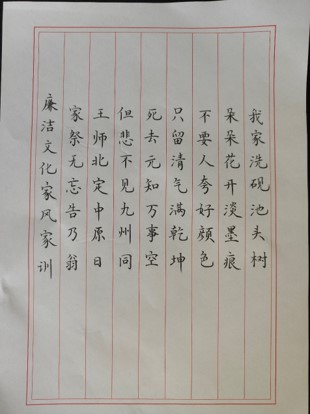 我家洗砚池头树
朵朵花开淡墨痕
不要人夸好颜色
只留清气满乾坤
死去元知万事空
但悲不见九州同
王师北定中原日
家祭无忘告乃翁
廉洁文化家风家训